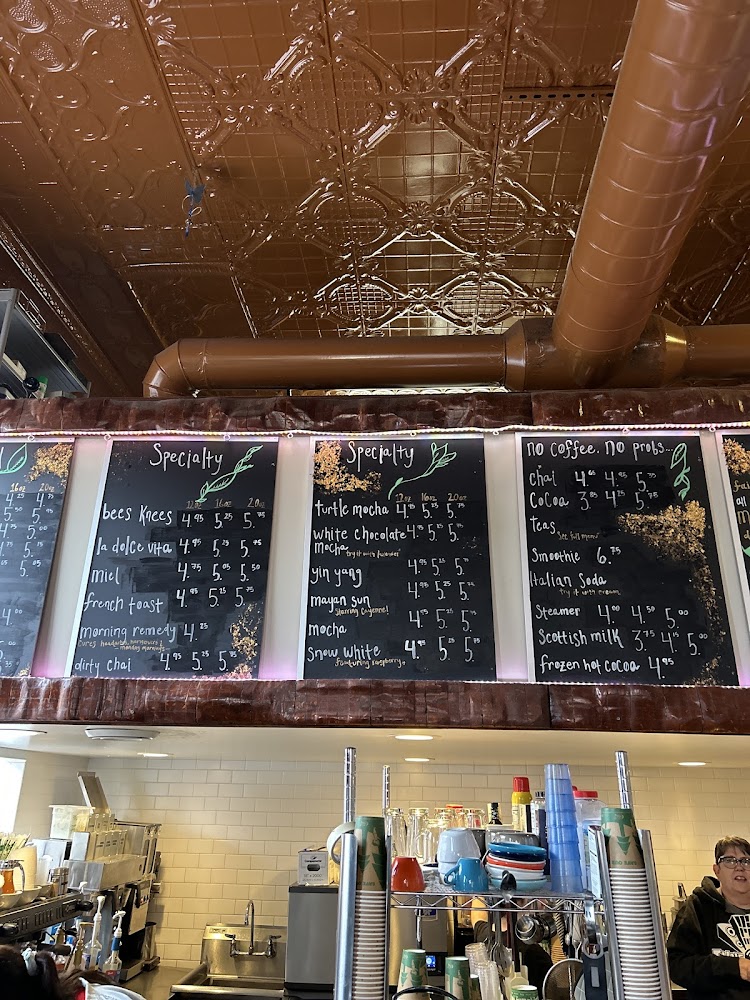 16oz 20oz
Specialty
12oz 16oz 20oz
bees knees 4.95 5.25 5.75
la dolce vita 4.95 5.25 5.75
miel 4.75 5.05 5.50
french toast 4.95 5.25 5.75
morning remedy 4.25
cures headwitch, hangovers!
monday mornings
dirty chai 4.95 5.25 5.75
Specialty
12oz 16oz 20oz
turtle mocha 4.95 5.25 5.75
white chocolate 4.95 5.25 5.75
mocha try it with lavender
yin yang 4.95 5.25 5.75
mayan sun 4.95 5.25 5.75
starring cayenne!
mocha 4.95 5.25 5.75
snow white 4.95 5.25 5.75
featuring raspberry
no coffee. no probs...
chai 4.65 4.95 5.35
cocoa 3.85 4.25 5.75
teas
see full menu
Smoothie 6.75
Italian Soda
try it with cream
Steamer 4.00 4.50 5.00
Scottish milk 3.75 4.15 5.00
frozen hot cocoa 4.95